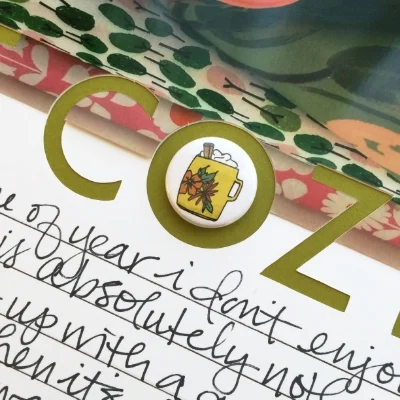 COZ
e of year i don't enjo
is absolutely not
up with a
hen it's